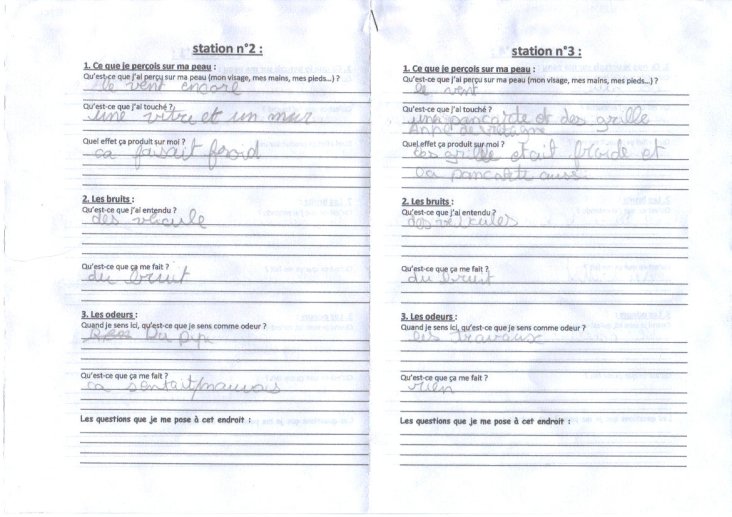 station n°2 :
1. Ce que je perçois sur ma peau :
Qu'est-ce que j'ai perçu sur ma peau (mon visage, mes mains, mes pieds…) ?
le vent encore
Qu'est-ce que j'ai touché ?
une vitre et un mur
Quel effet ça produit sur moi ?
ca faisait froid
2. Les bruits :
Qu'est-ce que j'ai entendu ?
des veicule
Qu'est-ce que ça me fait ?
du bruit
3. Les odeurs :
Quand je sens ici, qu'est-ce que je sens comme odeur ?
Du pipi
Qu'est-ce que ça me fait ?
ca sentait mauvais
Les questions que je me pose à cet endroit :
station n°3 :
1. Ce que je perçois sur ma peau :
Qu'est-ce que j'ai perçu sur ma peau (mon visage, mes mains, mes pieds…) ?
le vent
Qu'est-ce que j'ai touché ?
une pancarte et des grille
Anne de Bretagne
Quel effet ça produit sur moi ?
des grille etait froide et
la pancarte aussi
2. Les bruits :
Qu'est-ce que j'ai entendu ?
des veicules
Qu'est-ce que ça me fait ?
du bruit
3. Les odeurs :
Quand je sens ici, qu'est-ce que je sens comme odeur ?
les travaux
Qu'est-ce que ça me fait ?
rien
Les questions que je me pose à cet endroit :